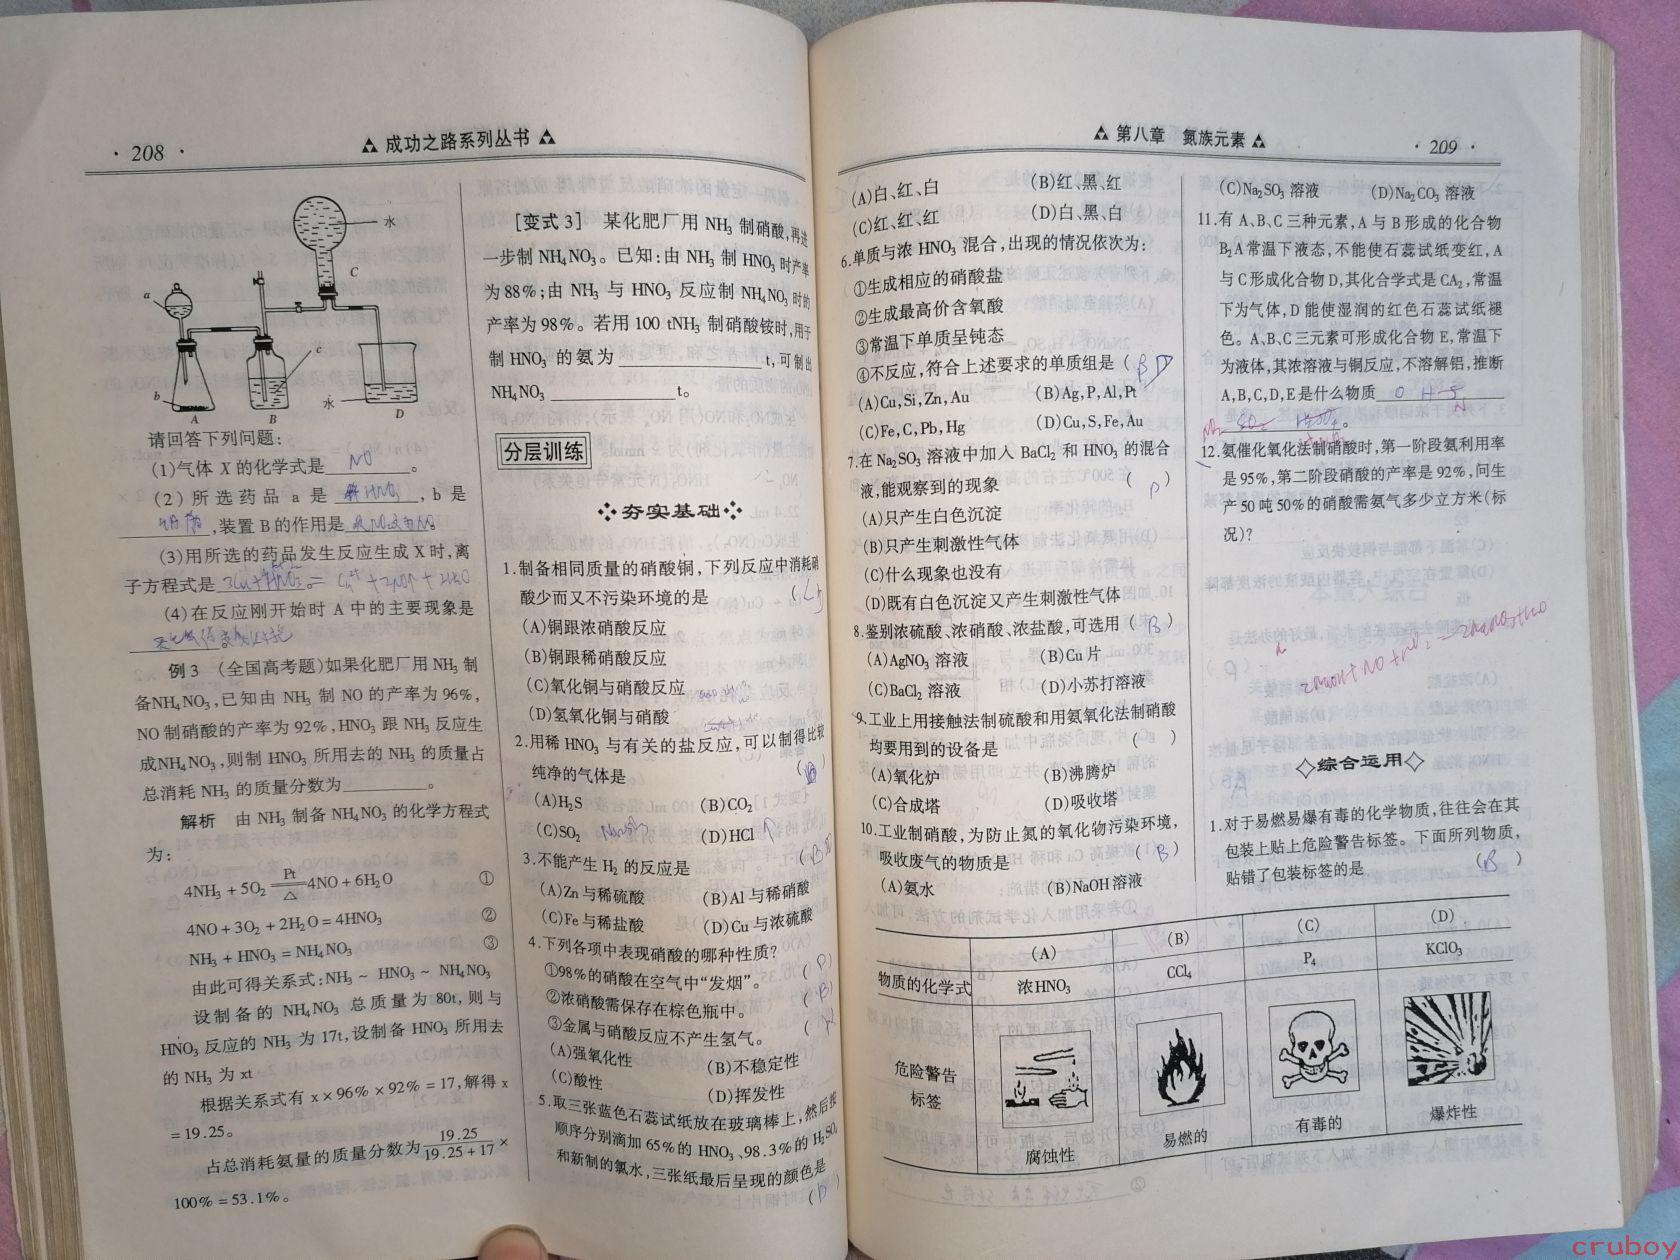 · 208 ·
成功之路系列丛书
水
C
a
c
b
水
A
B
D
请回答下列问题:
(1)气体 X 的化学式是 NO 。
(2)所选药品 a 是 稀HNO₃ ,b 是
铜屑 ,装置 B 的作用是
(3)用所选的药品发生反应生成 X 时,离
子方程式是
(4)在反应刚开始时 A 中的主要现象是
例 3 (全国高考题)如果化肥厂用 NH₃ 制
备NH₄NO₃,已知由 NH₃ 制 NO 的产率为 96%,
NO 制硝酸的产率为 92%,HNO₃ 跟 NH₃ 反应生
成NH₄NO₃,则制 HNO₃ 所用去的 NH₃ 的质量占
总消耗 NH₃ 的质量分数为________。
解析 由 NH₃ 制备 NH₄NO₃ 的化学方程式
为:
4NH₃ + 5O₂ =Pt/△= 4NO + 6H₂O ①
4NO + 3O₂ + 2H₂O = 4HNO₃ ②
NH₃ + HNO₃ = NH₄NO₃ ③
由此可得关系式:NH₃ ~ HNO₃ ~ NH₄NO₃
设制备的 NH₄NO₃ 总质量为 80t,则与
HNO₃ 反应的 NH₃ 为 17t,设制备 HNO₃ 所用去
的 NH₃ 为 xt
根据关系式有 x × 96% × 92% = 17,解得 x
= 19.25。
占总消耗氨量的质量分数为 19.25/(19.25 + 17) ×
100% = 53.1%。
[变式 3] 某化肥厂用 NH₃ 制硝酸,再进
一步制 NH₄NO₃。已知:由 NH₃ 制 HNO₃ 时产率
为 88%;由 NH₃ 与 HNO₃ 反应制 NH₄NO₃ 时的
产率为 98%。若用 100 tNH₃ 制硝酸铵时,用于
制 HNO₃ 的氨为________t,可制出
NH₄NO₃________t。
分层训练
夯实基础
1.制备相同质量的硝酸铜,下列反应中消耗硝
酸少而又不污染环境的是
(A)铜跟浓硝酸反应
(B)铜跟稀硝酸反应
(C)氧化铜与硝酸反应
(D)氢氧化铜与硝酸
2.用稀 HNO₃ 与有关的盐反应,可以制得比较
纯净的气体是 (B)
(A)H₂S (B)CO₂
(C)SO₂ (D)HCl
3.不能产生 H₂ 的反应是
(A)Zn 与稀硫酸 (B)Al 与稀硝酸
(C)Fe 与稀盐酸 (D)Cu 与浓硫酸
4.下列各项中表现硝酸的哪种性质?
①98%的硝酸在空气中“发烟”。 (D)
②浓硝酸需保存在棕色瓶中。 (B)
③金属与硝酸反应不产生氢气。
(A)强氧化性 (B)不稳定性
(C)酸性 (D)挥发性
5.取三张蓝色石蕊试纸放在玻璃棒上,然后按
顺序分别滴加 65%的 HNO₃、98.3%的 H₂SO₄
和新制的氯水,三张纸最后呈现的颜色是
(D)
第八章 氮族元素
· 209 ·
(A)白、红、白 (B)红、黑、红
(C)红、红、红 (D)白、黑、白
6.单质与浓 HNO₃ 混合,出现的情况依次为:
①生成相应的硝酸盐
②生成最高价含氧酸
③常温下单质呈钝态
④不反应,符合上述要求的单质组是
(A)Cu,Si,Zn,Au (B)Ag,P,Al,Pt
(C)Fe,C,Pb,Hg (D)Cu,S,Fe,Au
7.在 Na₂SO₃ 溶液中加入 BaCl₂ 和 HNO₃ 的混合
液,能观察到的现象 (D)
(A)只产生白色沉淀
(B)只产生刺激性气体
(C)什么现象也没有
(D)既有白色沉淀又产生刺激性气体
8.鉴别浓硫酸、浓硝酸、浓盐酸,可选用 (B)
(A)AgNO₃ 溶液 (B)Cu 片
(C)BaCl₂ 溶液 (D)小苏打溶液
9.工业上用接触法制硫酸和用氨氧化法制硝酸
均要用到的设备是 ( )
(A)氧化炉 (B)沸腾炉
(C)合成塔 (D)吸收塔
10.工业制硝酸,为防止氮的氧化物污染环境,
吸收废气的物质是 (B)
(A)氨水 (B)NaOH 溶液
(C)Na₂SO₃ 溶液 (D)Na₂CO₃ 溶液
11.有 A、B、C 三种元素,A 与 B 形成的化合物
B₂A 常温下液态,不能使石蕊试纸变红,A
与 C 形成化合物 D,其化学式是 CA₂,常温
下为气体,D 能使湿润的红色石蕊试纸褪
色。A、B、C 三元素可形成化合物 E,常温下
为液体,其浓溶液与铜反应,不溶解铝,推断
A,B,C,D,E 是什么物质 O H S
N
NO₂ SO₂ H₂SO₄ 。
12.氨催化氧化法制硝酸时,第一阶段氨利用率
是 95%,第二阶段硝酸的产率是 92%,问生
产 50 吨 50%的硝酸需氨气多少立方米(标
况)?
2NaOH + NO + NO₂ = 2NaNO₂ + H₂O
综合运用
1.对于易燃易爆有毒的化学物质,往往会在其
包装上贴上危险警告标签。下面所列物质,
贴错了包装标签的是 (B)
(A) (B) (C) (D)
物质的化学式 浓HNO₃ CCl₄ P₄ KClO₃
危险警告
标签
腐蚀性 易燃的 有毒的 爆炸性
cruboy